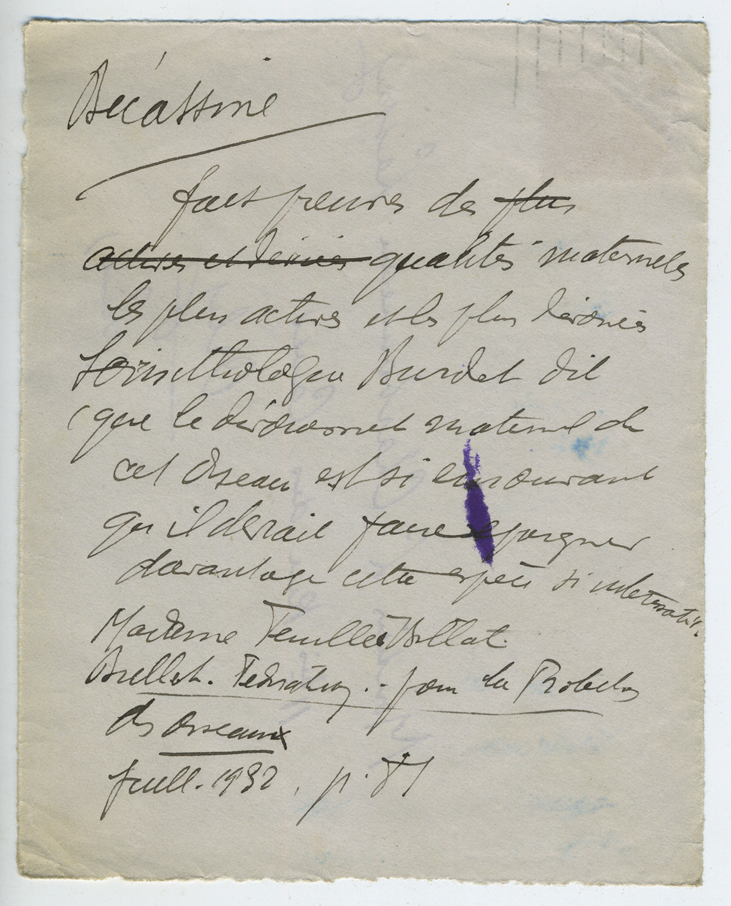 Bécassine
fait preuves des ~~plus~~
~~actives et dévoués~~ qualités maternels
les plus actives et les plus dévoués
L'ornithologue Burdet dit
que le dévouement maternel de
cet oiseau est si émouvant
qu'il devrait faire épargner
davantage cette espèce si intéressante.
Madame Feuillée Billot.
Bullet. pour la Protection
des oiseaux
Juill. 1932, p. 81